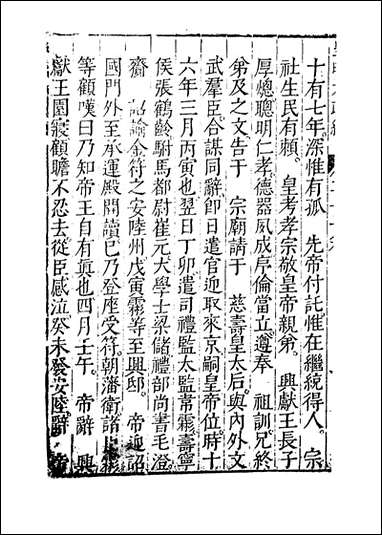 十有七年深惟有孤　先帝付託惟在繼統得人　宗
社生民有賴　皇考孝宗敬皇帝親弟　興獻王長子
厚熜聰明仁孝德器夙成序倫當立遵奉　祖訓兄終
弟及之文告于　宗廟請于　慈壽皇太后與內外文
武羣臣合謀同辭即日遣官迎取來京嗣皇帝位時十
六年三月丙寅也翌日丁卯遣司禮監太監韋霦壽寧
侯張鶴齡駙馬都尉崔元大學士梁儲禮部尚書毛澄
齎　詔諭金符之安陸州戊寅霦等至興邸　帝迎詔
國門外至承運殿開讀已乃登座受符朝藩衛諸
等顧嘆曰乃知帝王自有眞也四月壬午　帝辭　興
獻王園寢顧瞻不忍去從臣感泣癸未發安陸辭